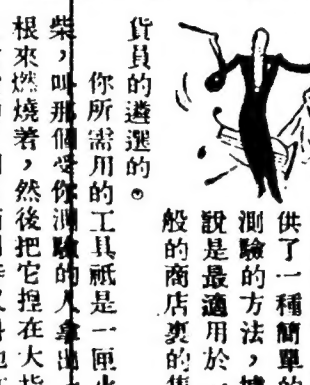 供了一種簡單的
測驗的方法，據
說是最適用於
般的商店裏的售
貨員的遴選的。
你所需用的工具祇是一匣火
柴，叫那個受你測驗的人拿出
根來燃燒着，然後把它捏在大指